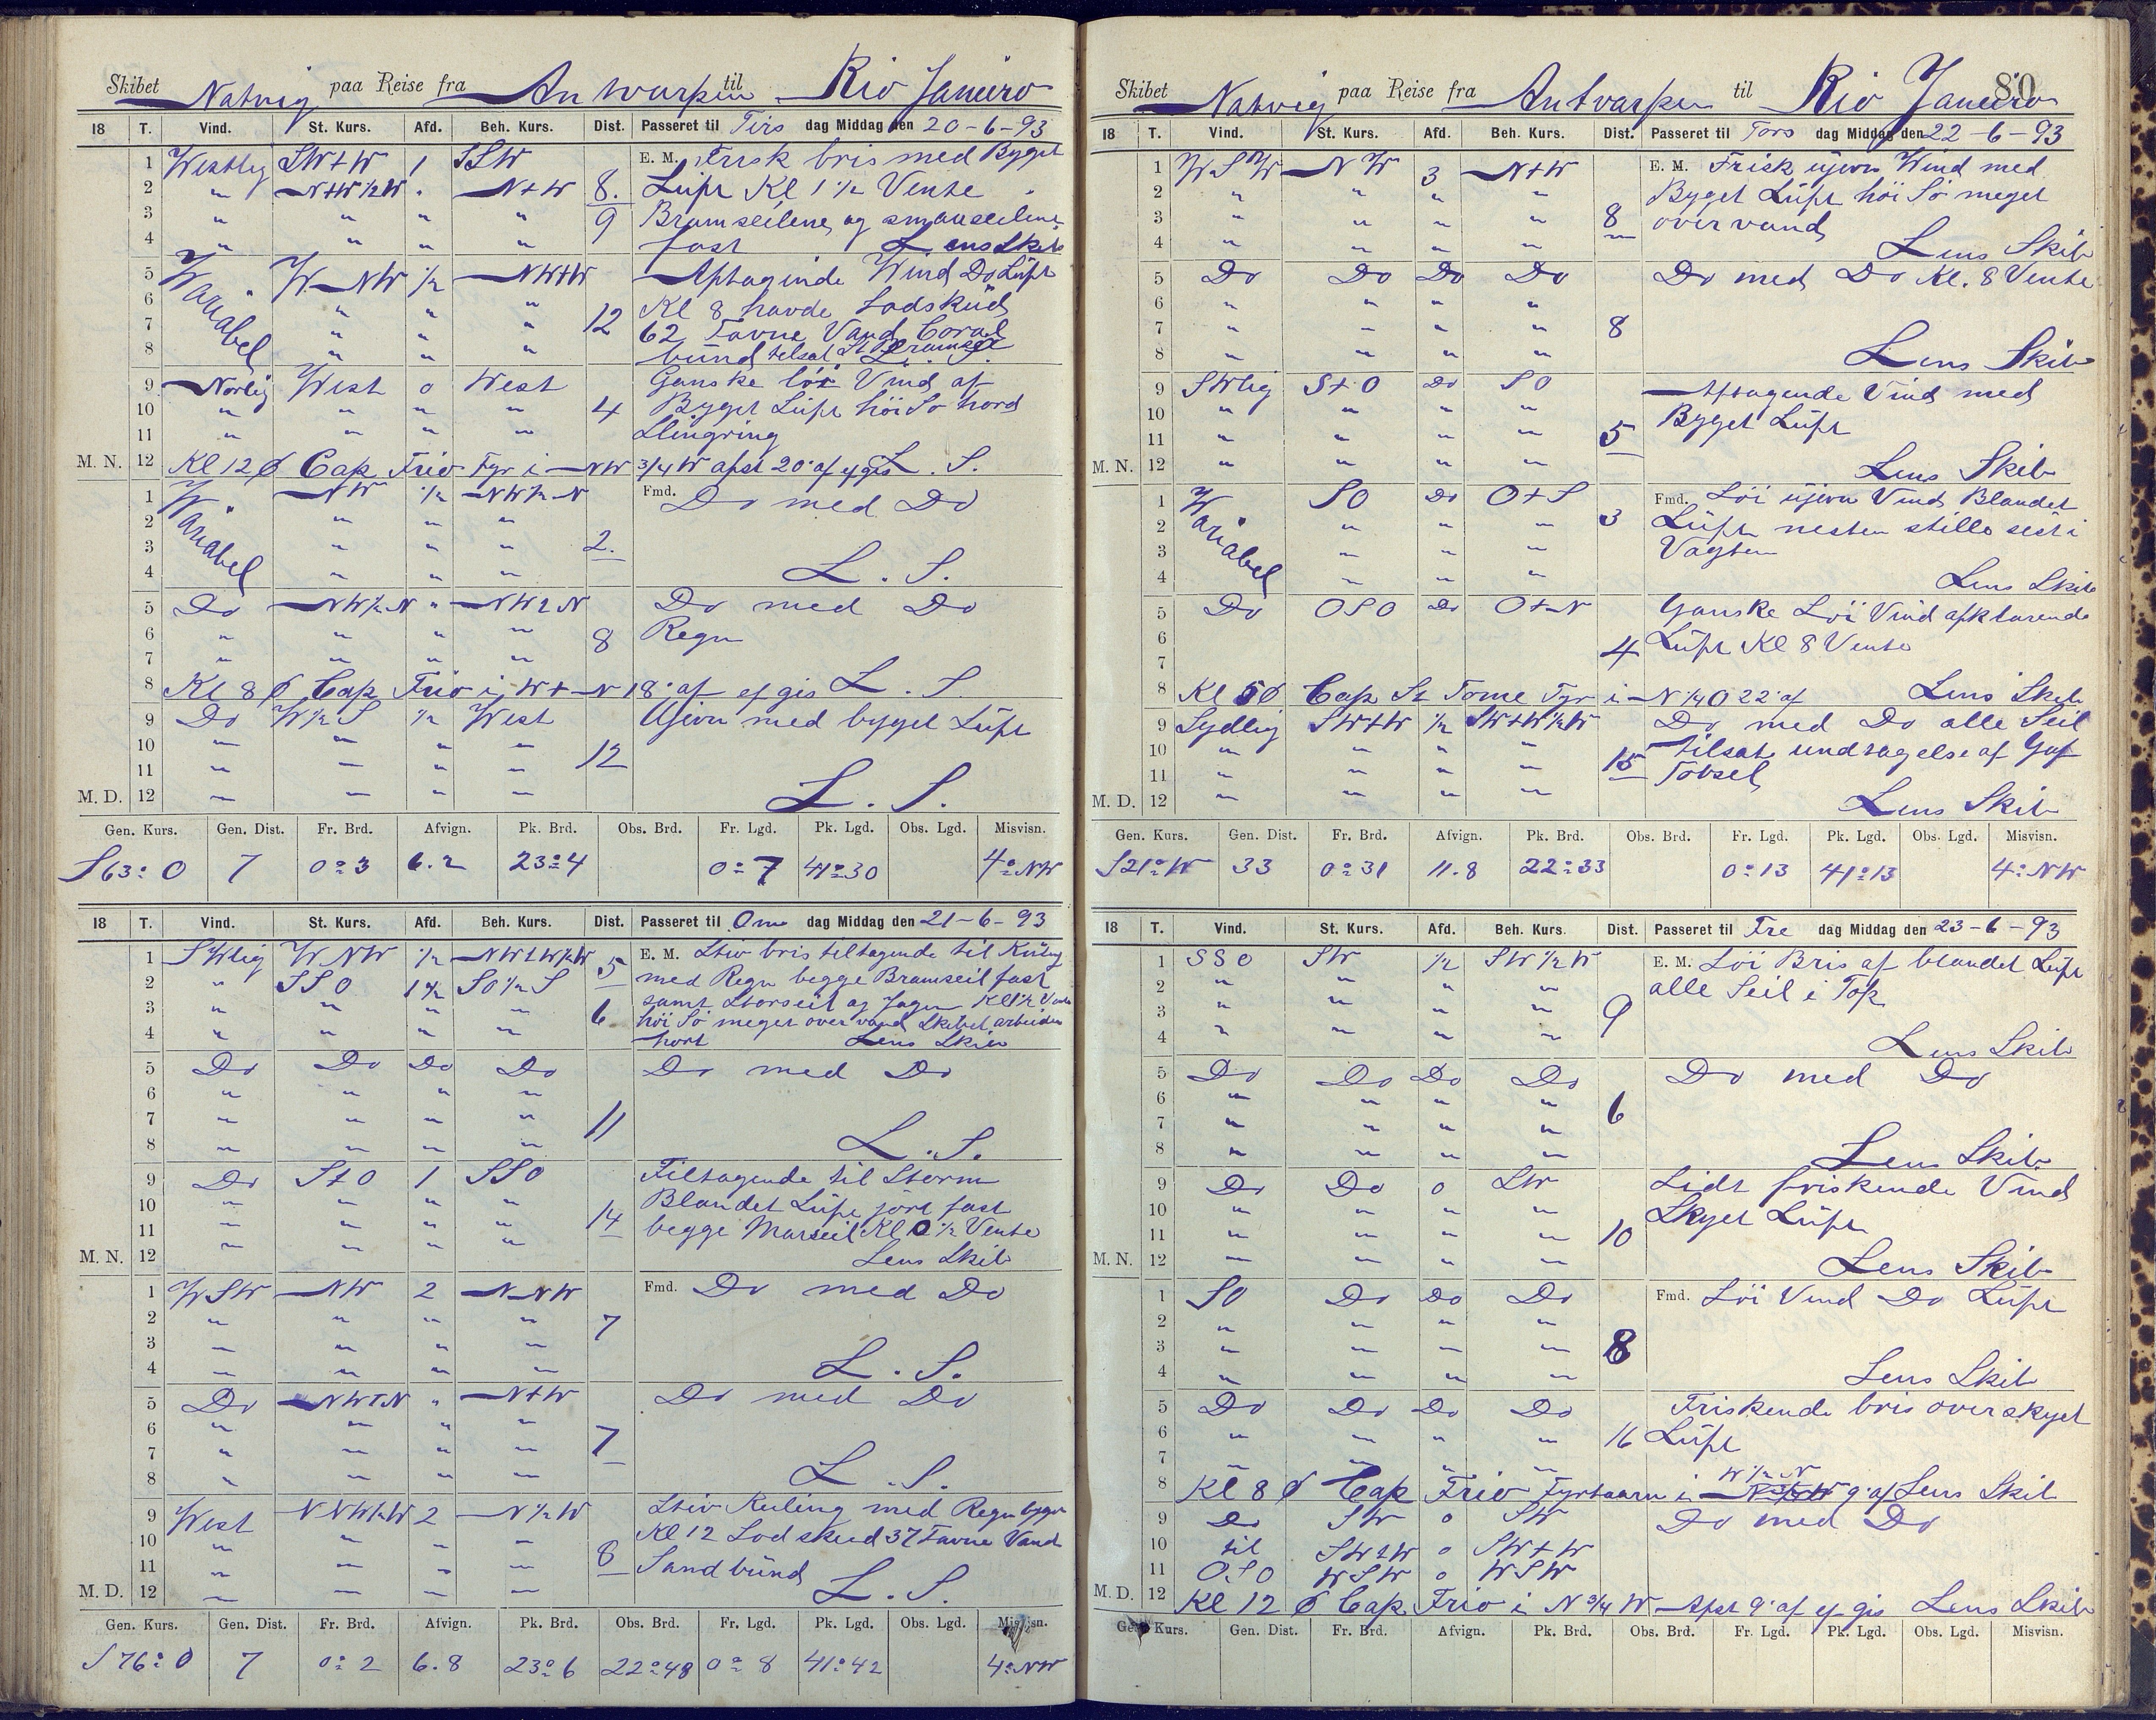 Skibet Natvig paa Reise fra Antwarpen til Rio Janeiro
18 T. Vind. St. Kurs. Afd. Beh. Kurs. Dist. Passeret til Tirs dag Middag den 20-6-93
1 Westlig SW+W 1 SSW E. M. Frisk bris med Byget
2 " N+W½W " N+W 8. Lüft Kl 1½ Vente
3 " " " " 9 Bramseilene og smaaseilene
4 " " " " fast Lens Skib
5 Wariabel W-NW ½ NW+W Aftaginde Wind Do Lüft
6 " " " Kl 8 havde Lodsküd
7 " " " 12 62 Favne Vand Coral
8 " " " bünd tilsat St Bramseil L. S.
9 Norlig West 0 West Ganske löi Vind af
10 " " " " 4 Byget Lüft höi Sö hord
11 " " " " Slingring
M. N. 12 Kl 12 Ø Cap Frio Fyr i NW ¾ W afst 20' af L. S.
1 Wariabel NW ½ NW½N Fmd. Do med Do
2 " " "
3 " " " 2.
4 " " " L. S.
5 Do NW½N " NW+N Do med Do
6 " " " " 8 Regn
7 " " " "
8 Kl 8 Ø Cap Frio i W+N 18' af ef gis L. S.
9 Do W½S ½ West Ujevn med byget Lüft
10 " " " "
11 " " " " 12
M. D. 12 " " " " L. S.
Gen. Kurs. Gen. Dist. Fr. Brd. Afvign. Pk. Brd. Obs. Brd. Fr. Lgd. Pk. Lgd. Obs. Lgd. Misvisn.
S63° O 7 0° 3 6.2 23° 4 0° 7 41° 30 4° NW
18 T. Vind. St. Kurs. Afd. Beh. Kurs. Dist. Passeret til Ons dag Middag den 21-6-93
1 SWlig WNW ½ NW+W½W 5 E. M. Stiv bris tiltagende til Küling
2 " SSO 1½ SO½S med Regn begge Bramseil fast
3 " " " " 6 samt Storseil og Jager Kl 1½ Vente
4 " " " " höi Sö meget over vand Skibet arbeider
hort Lens Skib
5 Do Do Do Do Do med Do
6 " " " "
7 " " " " 11
8 " " " " L. S.
9 Do S+O 1 SSO Tiltagende til Storm
10 " " " " Blandet Lüft jört fast
11 " " " " 14 begge Marseil Kl 0½ Vente
M. N. 12 " " " " Lens Skib
1 WSW NW 2 NNW Fmd. Do med Do
2 " " " " 7
3 " " " "
4 " " " " L. S.
5 Do NW+N " N+W Do med Do
6 " " " "
7 " " " " 7
8 " " " " L. S.
9 West NNW½W 2 N½W Stiv Kuling med Regn byger
10 " " " " Kl 12 Lodskud 37 Favne Vand
11 " " " " 8 Sandbünd
M. D. 12 " " " " L. S.
Gen. Kurs. Gen. Dist. Fr. Brd. Afvign. Pk. Brd. Obs. Brd. Fr. Lgd. Pk. Lgd. Obs. Lgd. Misvisn.
S 76° O 7 0° 2 6.8 23° 6 22° 48 0° 8 41° 42 4° NW
80
Skibet Natvig paa Reise fra Antvarpen til Rio Janeiro
18 T. Vind. St. Kurs. Afd. Beh. Kurs. Dist. Passeret til Tors dag Middag den 22-6-93
1 WSW NW 3 N+W E. M. Frisk ujevn Wind med
2 " " " " Byget Lüft höi Sö meget
3 " " " " 8 over vand
4 " " " " Lens Skib
5 Do Do Do Do Do med Do Kl. 8 Vente
6 " " " "
7 " " " " 8
8 " " " " Lens Skib
9 SWlig S+O Do SO Aftagende Vind med
10 " " " " Byget Lüft
11 " " " " 5
M. N. 12 " " " " Lens Skib
1 Wariabel SO Do O+S Fmd. Löi ujevn Vind Blandet
2 " " " 3 Lüft nesten stille sest i
3 " " " Vagten
4 " " " Lens Skib
5 Do OSO Do O+N Ganske Löi Vind afklarende
6 Lüft Kl 8 Vente
7 4
8 Kl 5 Ø Cap St Tome Fyr i N ¼ O 22' af Lens Skib
9 Sydlig SW+W ½ SW+W½W Do med Do alle Seil
10 " " " " tilsat undtagelse af Gaf
11 " " " " 15 Tobseil
M. D. 12 " " " " Lens Skib
Gen. Kurs. Gen. Dist. Fr. Brd. Afvign. Pk. Brd. Obs. Brd. Fr. Lgd. Pk. Lgd. Obs. Lgd. Misvisn.
S21° W 33 0° 31 11.8 22° 33 0° 13 41° 13 4° NW
18 T. Vind. St. Kurs. Afd. Beh. Kurs. Dist. Passeret til Fre dag Middag den 23-6-93
1 SSO SW ½ SW½W E. M. Löi Bris af blandet Lüft
2 " " " " alle Seil i Top
3 " " " " 9
4 " " " " Lens Skib
5 Do Do Do Do Do med Do
6 " " " " 6
7 " " " "
8 " " " " Lens Skib
9 Do Do 0 SW Lidt friskende Vind
10 " " " " Skyet Lüft
11 " " " " 10
M. N. 12 " " " " Lens Skib
1 SO Do Do Do Fmd. Löi Vind Do Lüft
2 " " " "
3 " " " " 8
4 " " " " Lens Skib
5 Do Do Do Do Friskende bris overskyet
6 " " " " 16 Lüft
7 " " " "
8 Kl 8 Ø Cap Frio Fyrtaarn i W½N 9' af Lens Skib
9 Do SW 0 SW Do med Do
10 til SW+W 0 SW+W
11 OSO WSW 0 WSW
M. D. 12 Kl 12 Ø Cap Frio i N ¾ W Afst 9' af ef gis Lens Skib
Gen. Kurs. Gen. Dist. Fr. Brd. Afvign. Pk. Brd. Obs. Brd. Fr. Lgd. Pk. Lgd. Obs. Lgd. Misvisn.